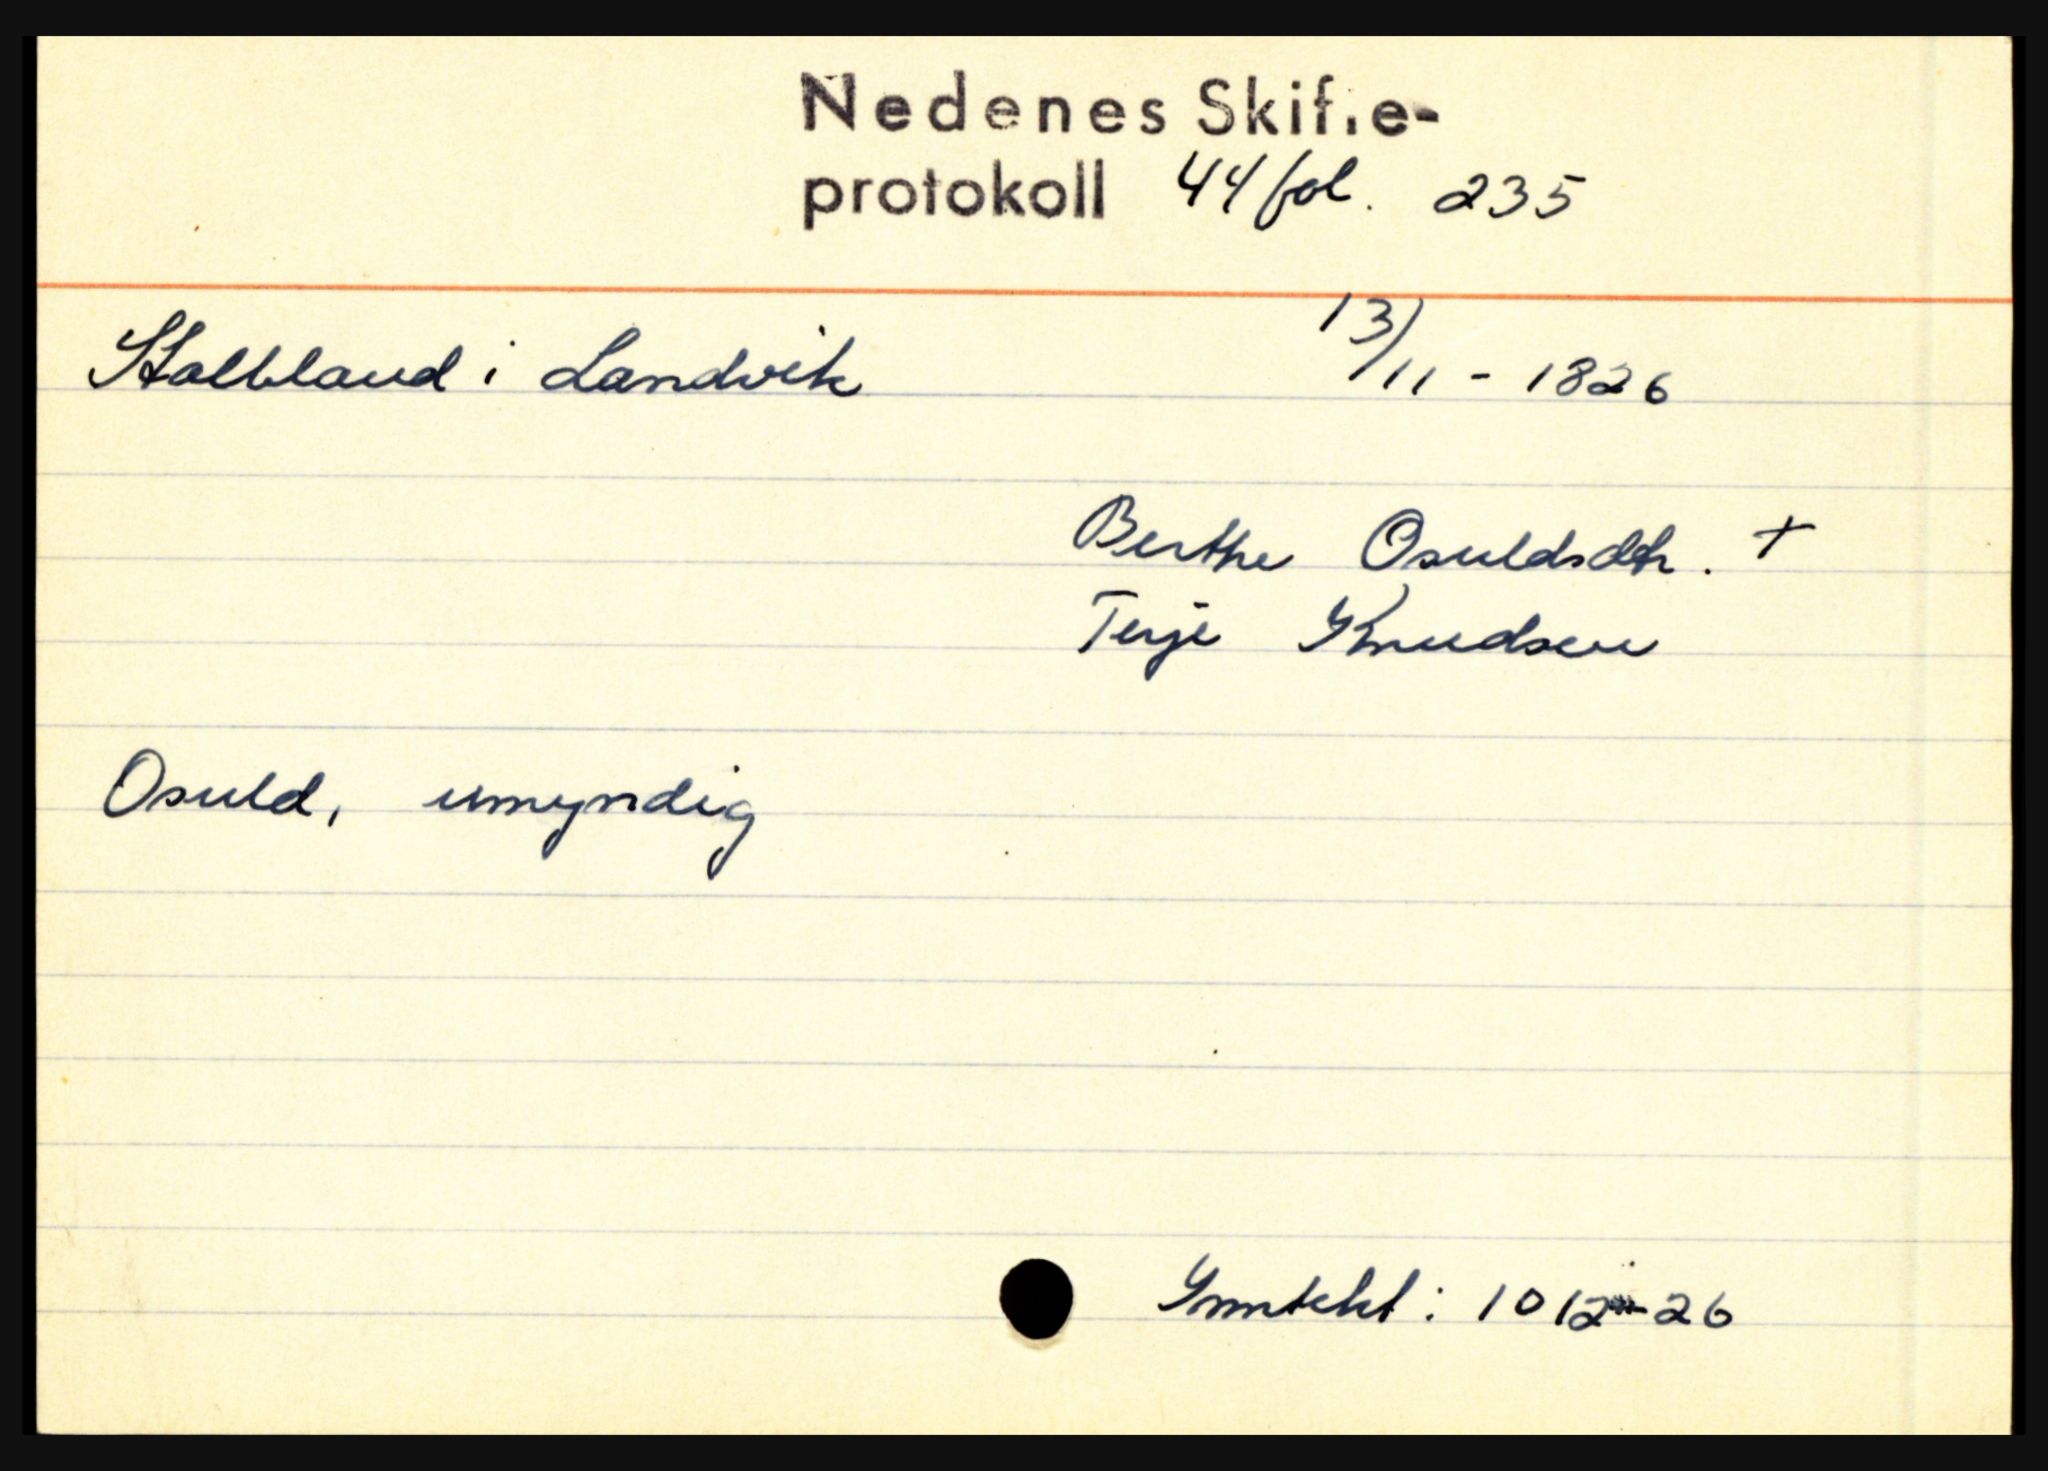 Nedenes Skifte-
protokoll 44 fol. 235
Stalleland i Landvik 13/11 - 1826
Berthe Osuldsdtr. +
Terje Knudsen
Osuld, umyndig
Inntekt: 1012-26